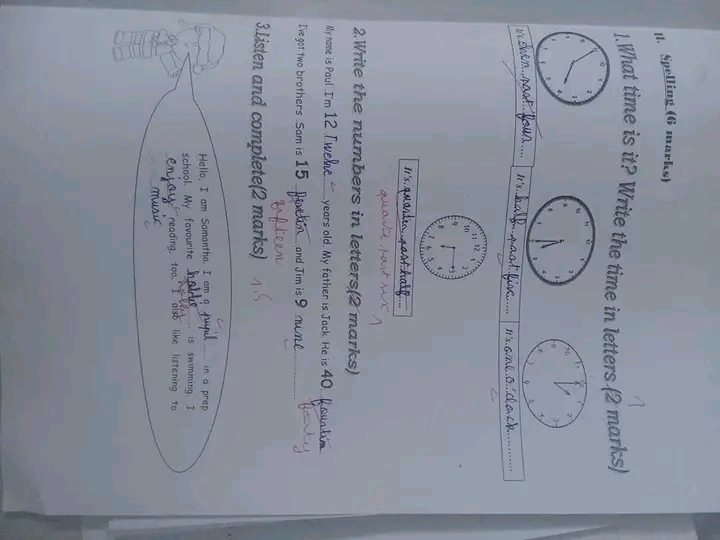 II. Spelling (6 marks)
1. What time is it? Write the time in letters.(2 marks)
past four....
It's half past five......
It's one o'clock............
It's quarter past half....
2. Write the numbers in letters.(2 marks)
My name is Paul. I'm 12 Twelve years old. My father is Jack. He is 40 fountin
I've got two brothers. Sam is 15 fivetin and Jim is 9 nine ............
fifteen
3. Listen and complete(2 marks) 1.5
Hello, I am Samantha. I am a pupil ..... in a prep
school. My favourite hobbie is swimming. I
enjoy reading, too. I also like listening to
music